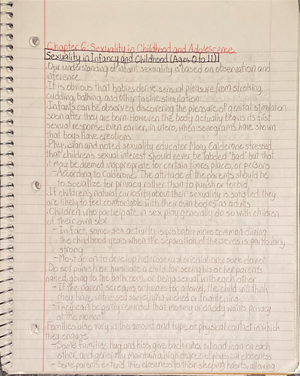 Chapter 6: Sexuality in Childhood and Adolescence
Sexuality in Infancy and Childhood (Ages 0 to 11)
Our understanding of infant sexuality is based on observation and
inference.
It is obvious that babies derive sensual pleasure from stroking,
cuddling, bathing, and other tactile stimulation.
Infants can be observed discovering the pleasure of genital stimulation
soon after they are born. However the body actually begins its first
sexual response even earlier, in utero, when sonograms have shown
that boys have erections.
Physician and noted sexuality educator Mary Calderone stressed
that children's sexual interest should never be labeled "bad" but that
it may be deemed inappropriate for certain times, places, or persons
According to Calderone, "The attitude of the parents should be
to socialize for privacy rather than to punish or forbid."
If children's natural curiosity about their sexuality is satisfied, they
are likely to feel comfortable with their own bodies as adults
Children who participate in sex play generally do so with children
of their own sex.
- In fact, same sex activity is
the childhood years when the separation of the sexes is particularly
strong
- Most go on to develop heterosexual orientations; some do not
Do not
- If the parent screams
- They can
of the moment
Families also vary in the amount and type of physical contact in which
they engage.
- Some families hug and kiss, give back rubs, sit and lean on each
other, and generally maintain a high degree of physical closeness
- Some parents extend this closeness to their sleeping habits, allowing